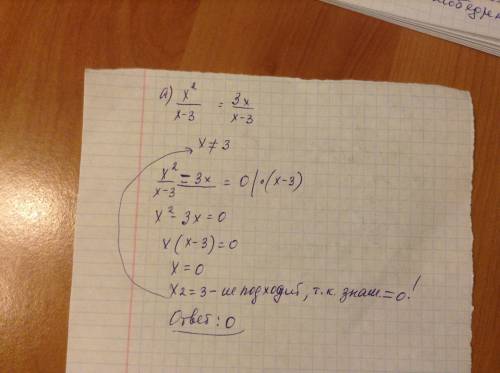 а) x²/(x-3) = 3x/(x-3)
x ≠ 3
(x² - 3x)/(x-3) = 0 | · (x-3)
x² - 3x = 0
x (x-3) = 0
x = 0
x2 = 3 - не подходит, т.к. знам. = 0!
Ответ: 0